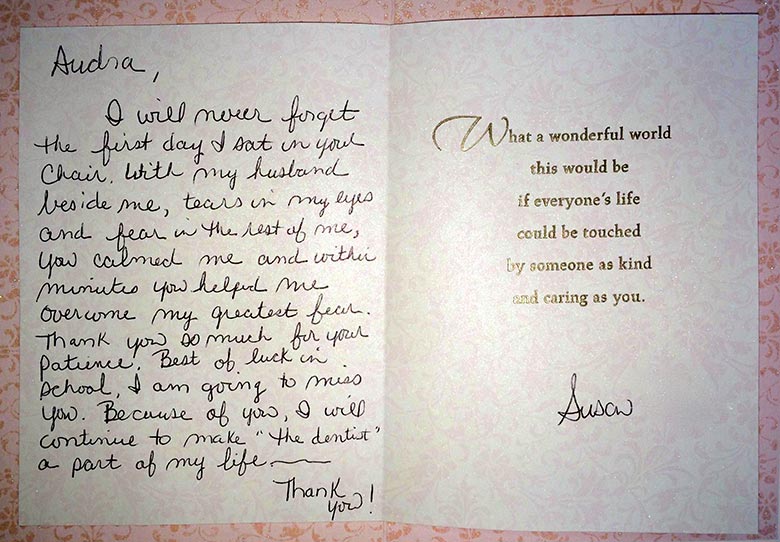 Audra,
I will never forget
the first day I sat in your
Chair. With my husband
beside me, tears in my eyes
and fear in the rest of me,
you calmed me and within
minutes you helped me
overcome my greatest fear.
Thank you so much for your
patience. Best of luck in
school, I am going to miss
you. Because of you, I will
continue to make "the dentist"
a part of my life.
Thank
you!
What a wonderful world
this would be
if everyone's life
could be touched
by someone as kind
and caring as you.
Susan